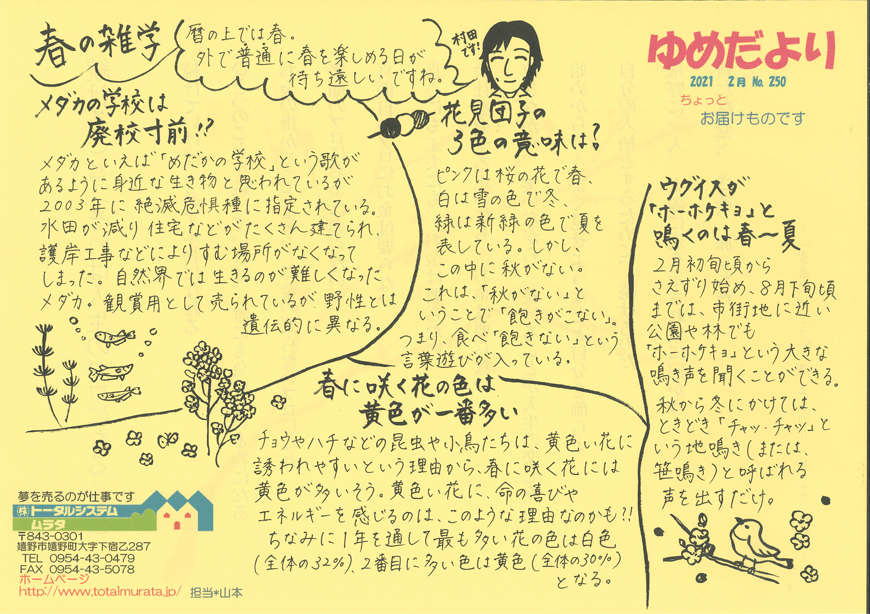 春の雑学
暦の上では春。
外で普通に春を楽しめる日が
待ち遠しいですね。
村田
です!
ゆめだより
2021 2月 No. 250
ちょっと
お届けものです
メダカの学校は
廃校寸前!?
メダカといえば「めだかの学校」という歌が
あるように身近な生き物と思われているが
2003年に絶滅危惧種に指定されている。
水田が減り住宅などがたくさん建てられ、
護岸工事などによりすむ場所がなくなって
しまった。自然界では生きるのが難しくなった
メダカ。観賞用として売られているが野性とは
遺伝的に異なる。
花見団子の
3色の意味は?
ピンクは桜の花で春、
白は雪の色で冬、
緑は新緑の色で夏を
表している。しかし、
この中に秋がない。
これは、「秋がない」と
いうことで「飽きがこない」。
つまり、食べ「飽きない」という
言葉遊びが入っている。
ウグイスが
「ホーホケキョ」と
鳴くのは春〜夏
2月初旬頃から
さえずり始め、8月下旬頃
までは、市街地に近い
公園や林でも
「ホーホケキョ」という大きな
鳴き声を聞くことができる。
秋から冬にかけては、
ときどき「チャッ・チャッ」と
いう地鳴き(または、
笹鳴き)と呼ばれる
声を出すだけ。
春に咲く花の色は
黄色が一番多い
チョウやハチなどの昆虫や小鳥たちは、黄色い花に
誘われやすいという理由から、春に咲く花には
黄色が多いそう。黄色い花に、命の喜びや
エネルギーを感じるのは、このような理由なのかも?!
ちなみに1年を通して最も多い花の色は白色
(全体の32%)、2番目に多い色は黄色(全体の30%)
となる。
夢を売るのが仕事です
(株)トータルシステム
ムラタ
〒843-0301
嬉野市嬉野町大字下宿乙287
TEL 0954-43-0479
FAX 0954-43-5078
ホームページ
http://www.totalmurata.jp/ 担当*山本